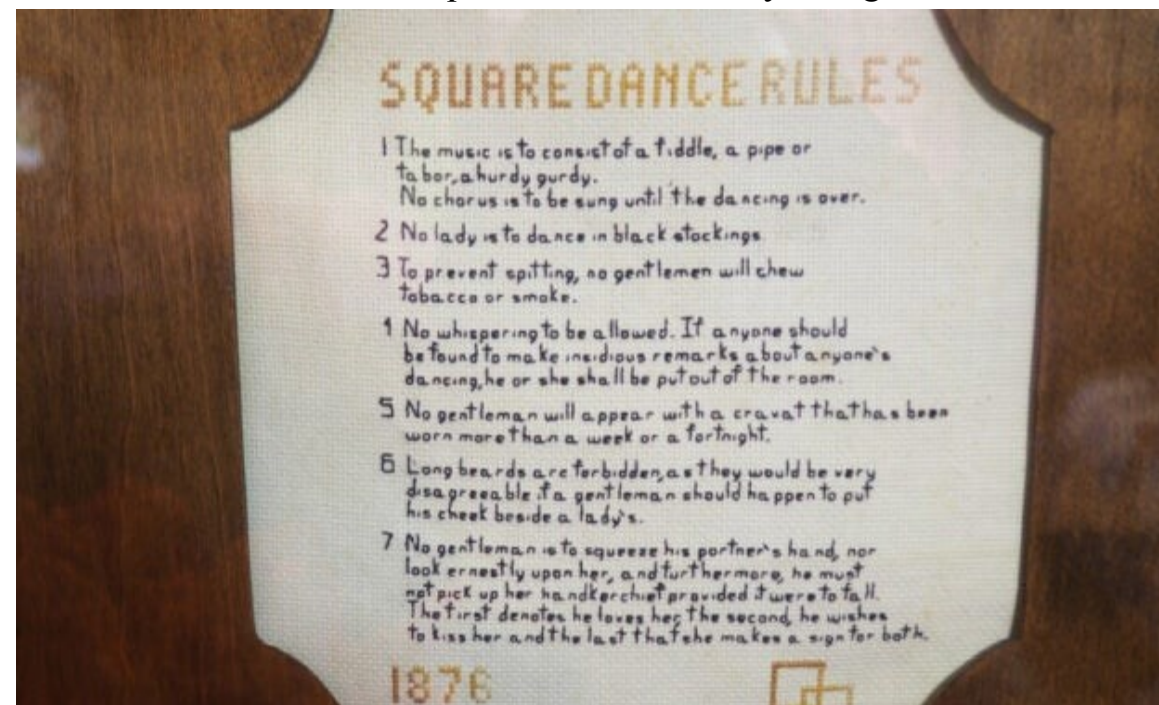 SQUARE DANCE RULES
1 The music is to consist of a fiddle, a pipe or
tabor, a hurdy gurdy.
No chorus is to be sung until the dancing is over.
2 No lady is to dance in black stockings
3 To prevent spitting, no gentlemen will chew
tobacco or smoke.
4 No whispering to be allowed. If anyone should
be found to make insidious remarks about anyone's
dancing, he or she shall be put out of the room.
5 No gentleman will appear with a cravat that has been
worn more than a week or a fortnight.
6 Long beards are forbidden, as they would be very
disagreeable if a gentleman should happen to put
his cheek beside a lady's.
7 No gentleman is to squeeze his partner's hand, nor
look ernestly upon her, and furthermore, he must
not pick up her handkerchief provided it were to fall.
The first denotes he loves her, the second, he wishes
to kiss her and the last that she makes a sign for both.
1876